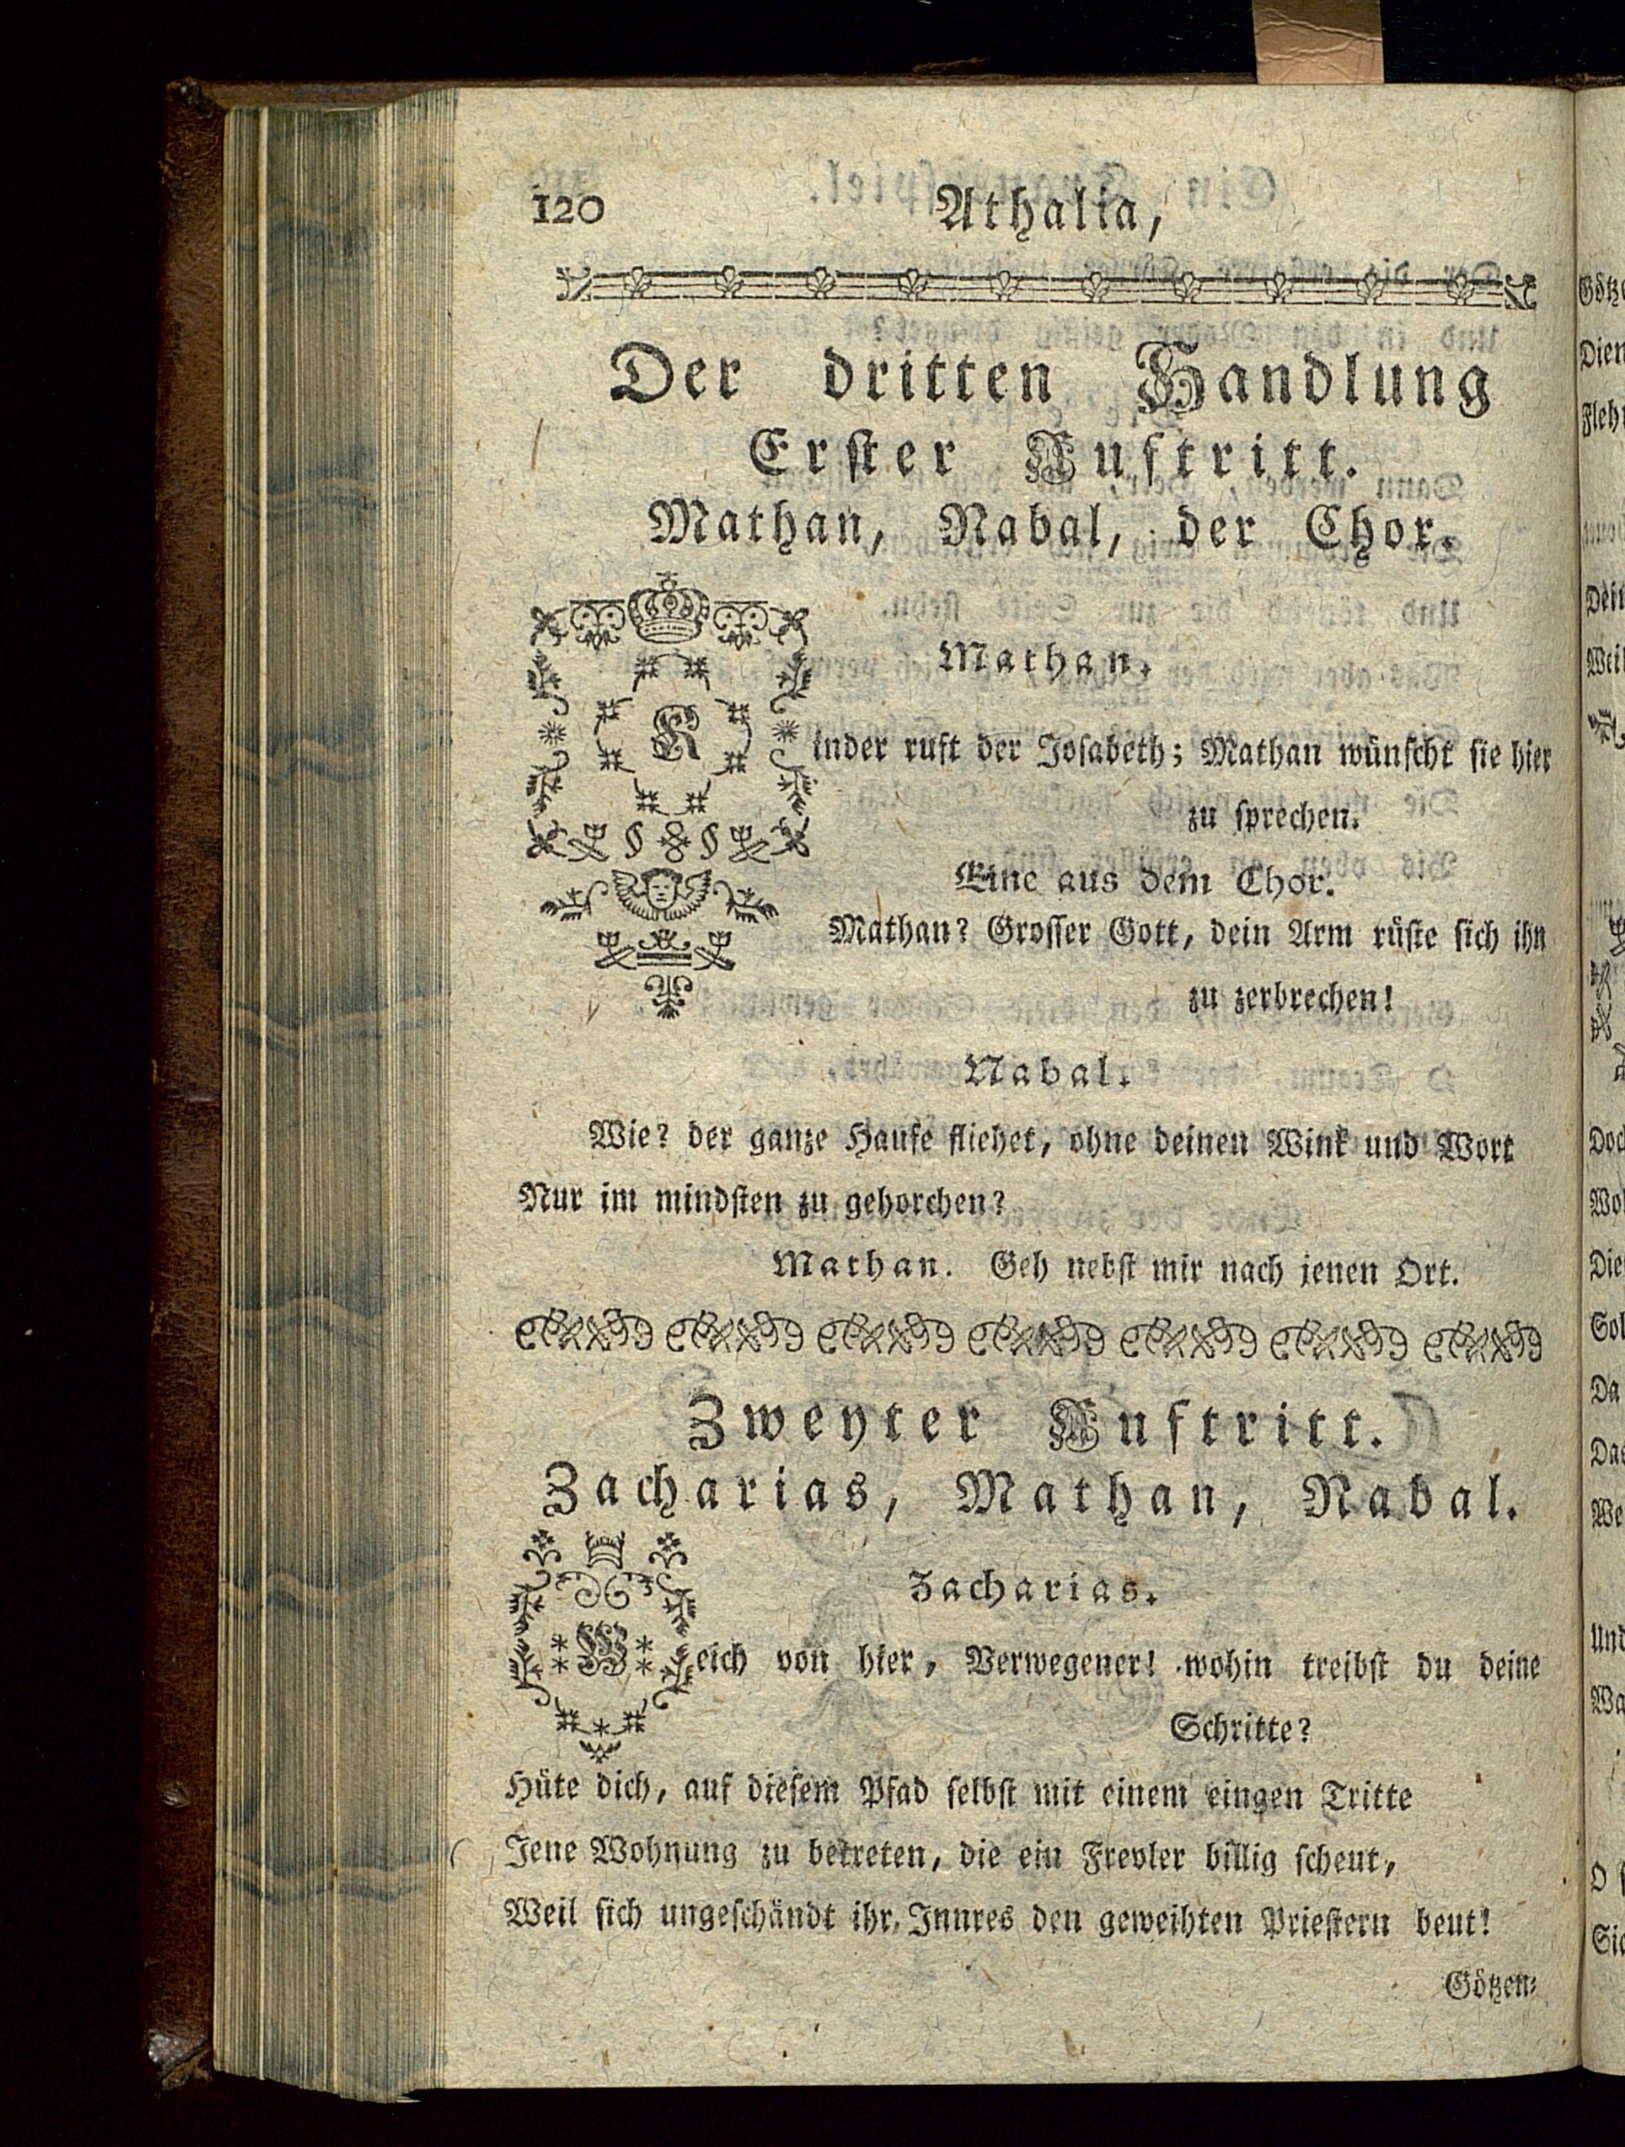 120
Athalia,
Der dritten Handlung
Erster Auftritt.
Mathan, Nabal, der Chor.
Mathan.
Kinder ruft der Josabeth; Mathan wünscht sie hier
zu sprechen.
Eine aus dem Chor.
Mathan? Grosser Gott, dein Arm rüste sich ihn
zu zerbrechen!
Nabal.
Wie? der ganze Haufe fliehet, ohne deinen Wink und Wort
Nur im mindsten zu gehorchen?
Mathan. Geh nebst mir nach jenen Ort.
Zweyter Auftritt.
Zacharias, Mathan, Nabal.
Zacharias.
Weich von hier, Verwegener! wohin treibst du deine
Schritte?
Hüte dich, auf diesem Pfad selbst mit einem eingen Tritte
Jene Wohnung zu betreten, die ein Frevler billig scheut,
Weil sich ungeschändt ihr Innres den geweihten Priestern beut!
Götzen-